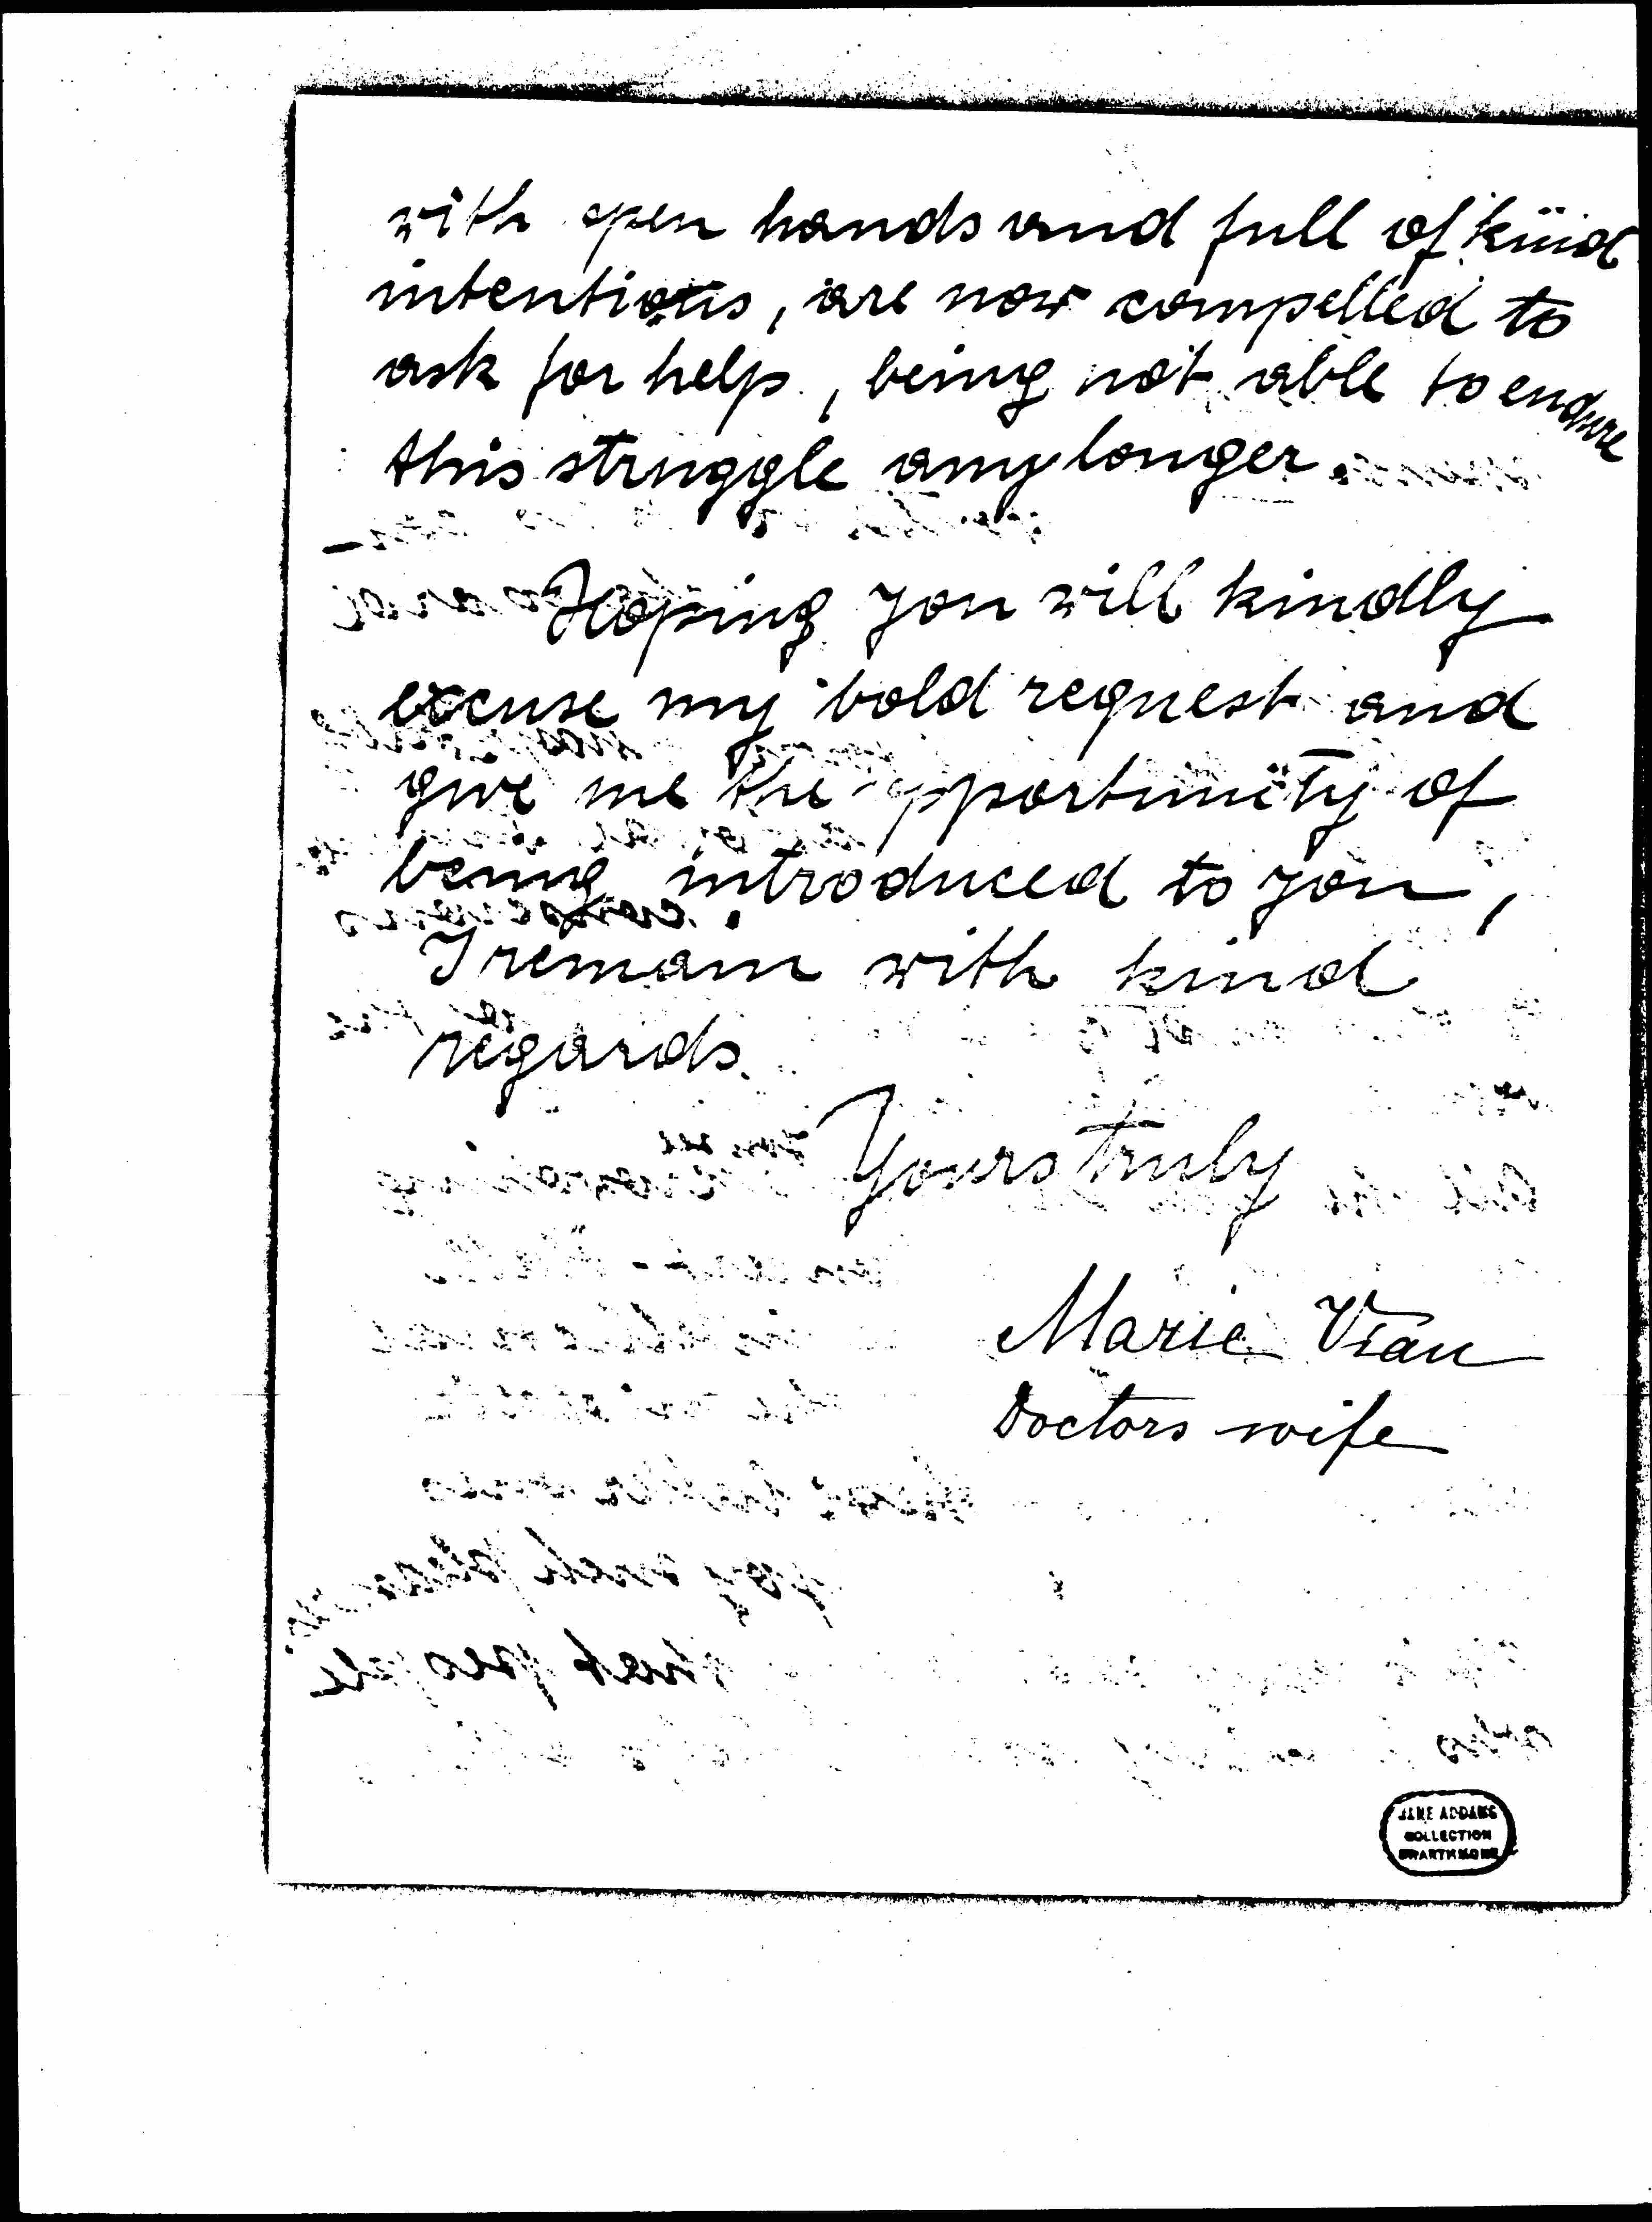 with open hands and full of kind
intentions, are now compelled to
ask for help, being not able to endure
this struggle any longer.
Hoping you will kindly
excuse my bold request and
give me the opportunity of
being introduced to you,
I remain with kind
regards.
Yours truly
Marie Vian
Doctors wife
JANE ADDAMS
COLLECTION
SWARTHMORE